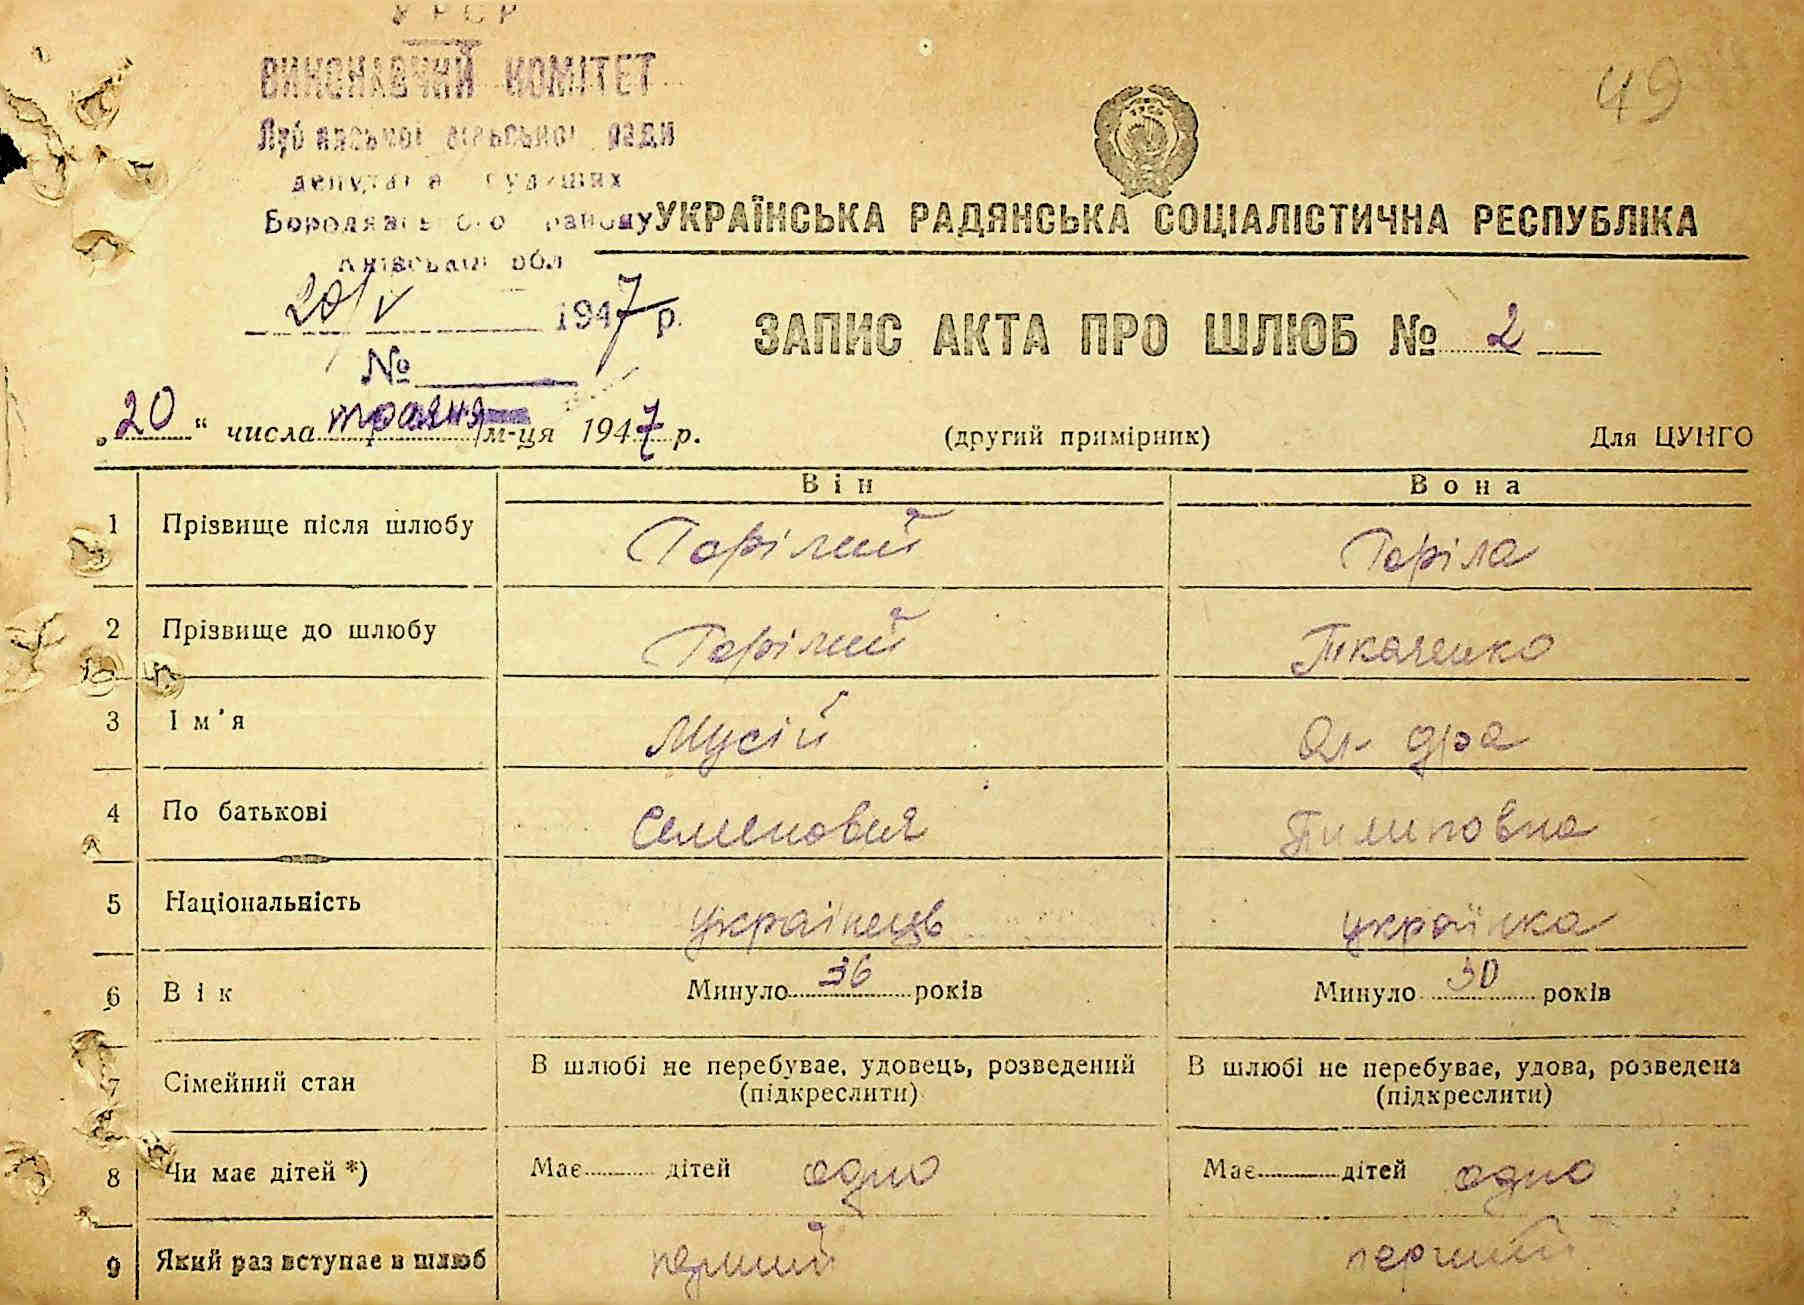 УРСР
49
ВИКОНАВЧИЙ КОМІТЕТ
сільської ради
депутатів трудящих
Бородянського району
Київської обл
УКРАЇНСЬКА РАДЯНСЬКА СОЦІАЛІСТИЧНА РЕСПУБЛІКА
20/V 1947 р.
ЗАПИС АКТА ПРО ШЛЮБ № 2
№
„20“ числа травня м-ця 1947 р. (другий примірник) Для ЦУНГО
Він Вона
1 Прізвище після шлюбу Горілий Горіла
2 Прізвище до шлюбу Горілий Ткаченко
3 Ім'я Мусій Ол-дра
4 По батькові Семенович Пилиповна
5 Національність українець українка
6 Вік Минуло 36 років Минуло 30 років
7 Сімейний стан В шлюбі не перебуває, удовець, розведений В шлюбі не перебуває, удова, розведена
(підкреслити) (підкреслити)
8 Чи має дітей *) Має дітей одно Має дітей одно
9 Який раз вступає в шлюб перший перший